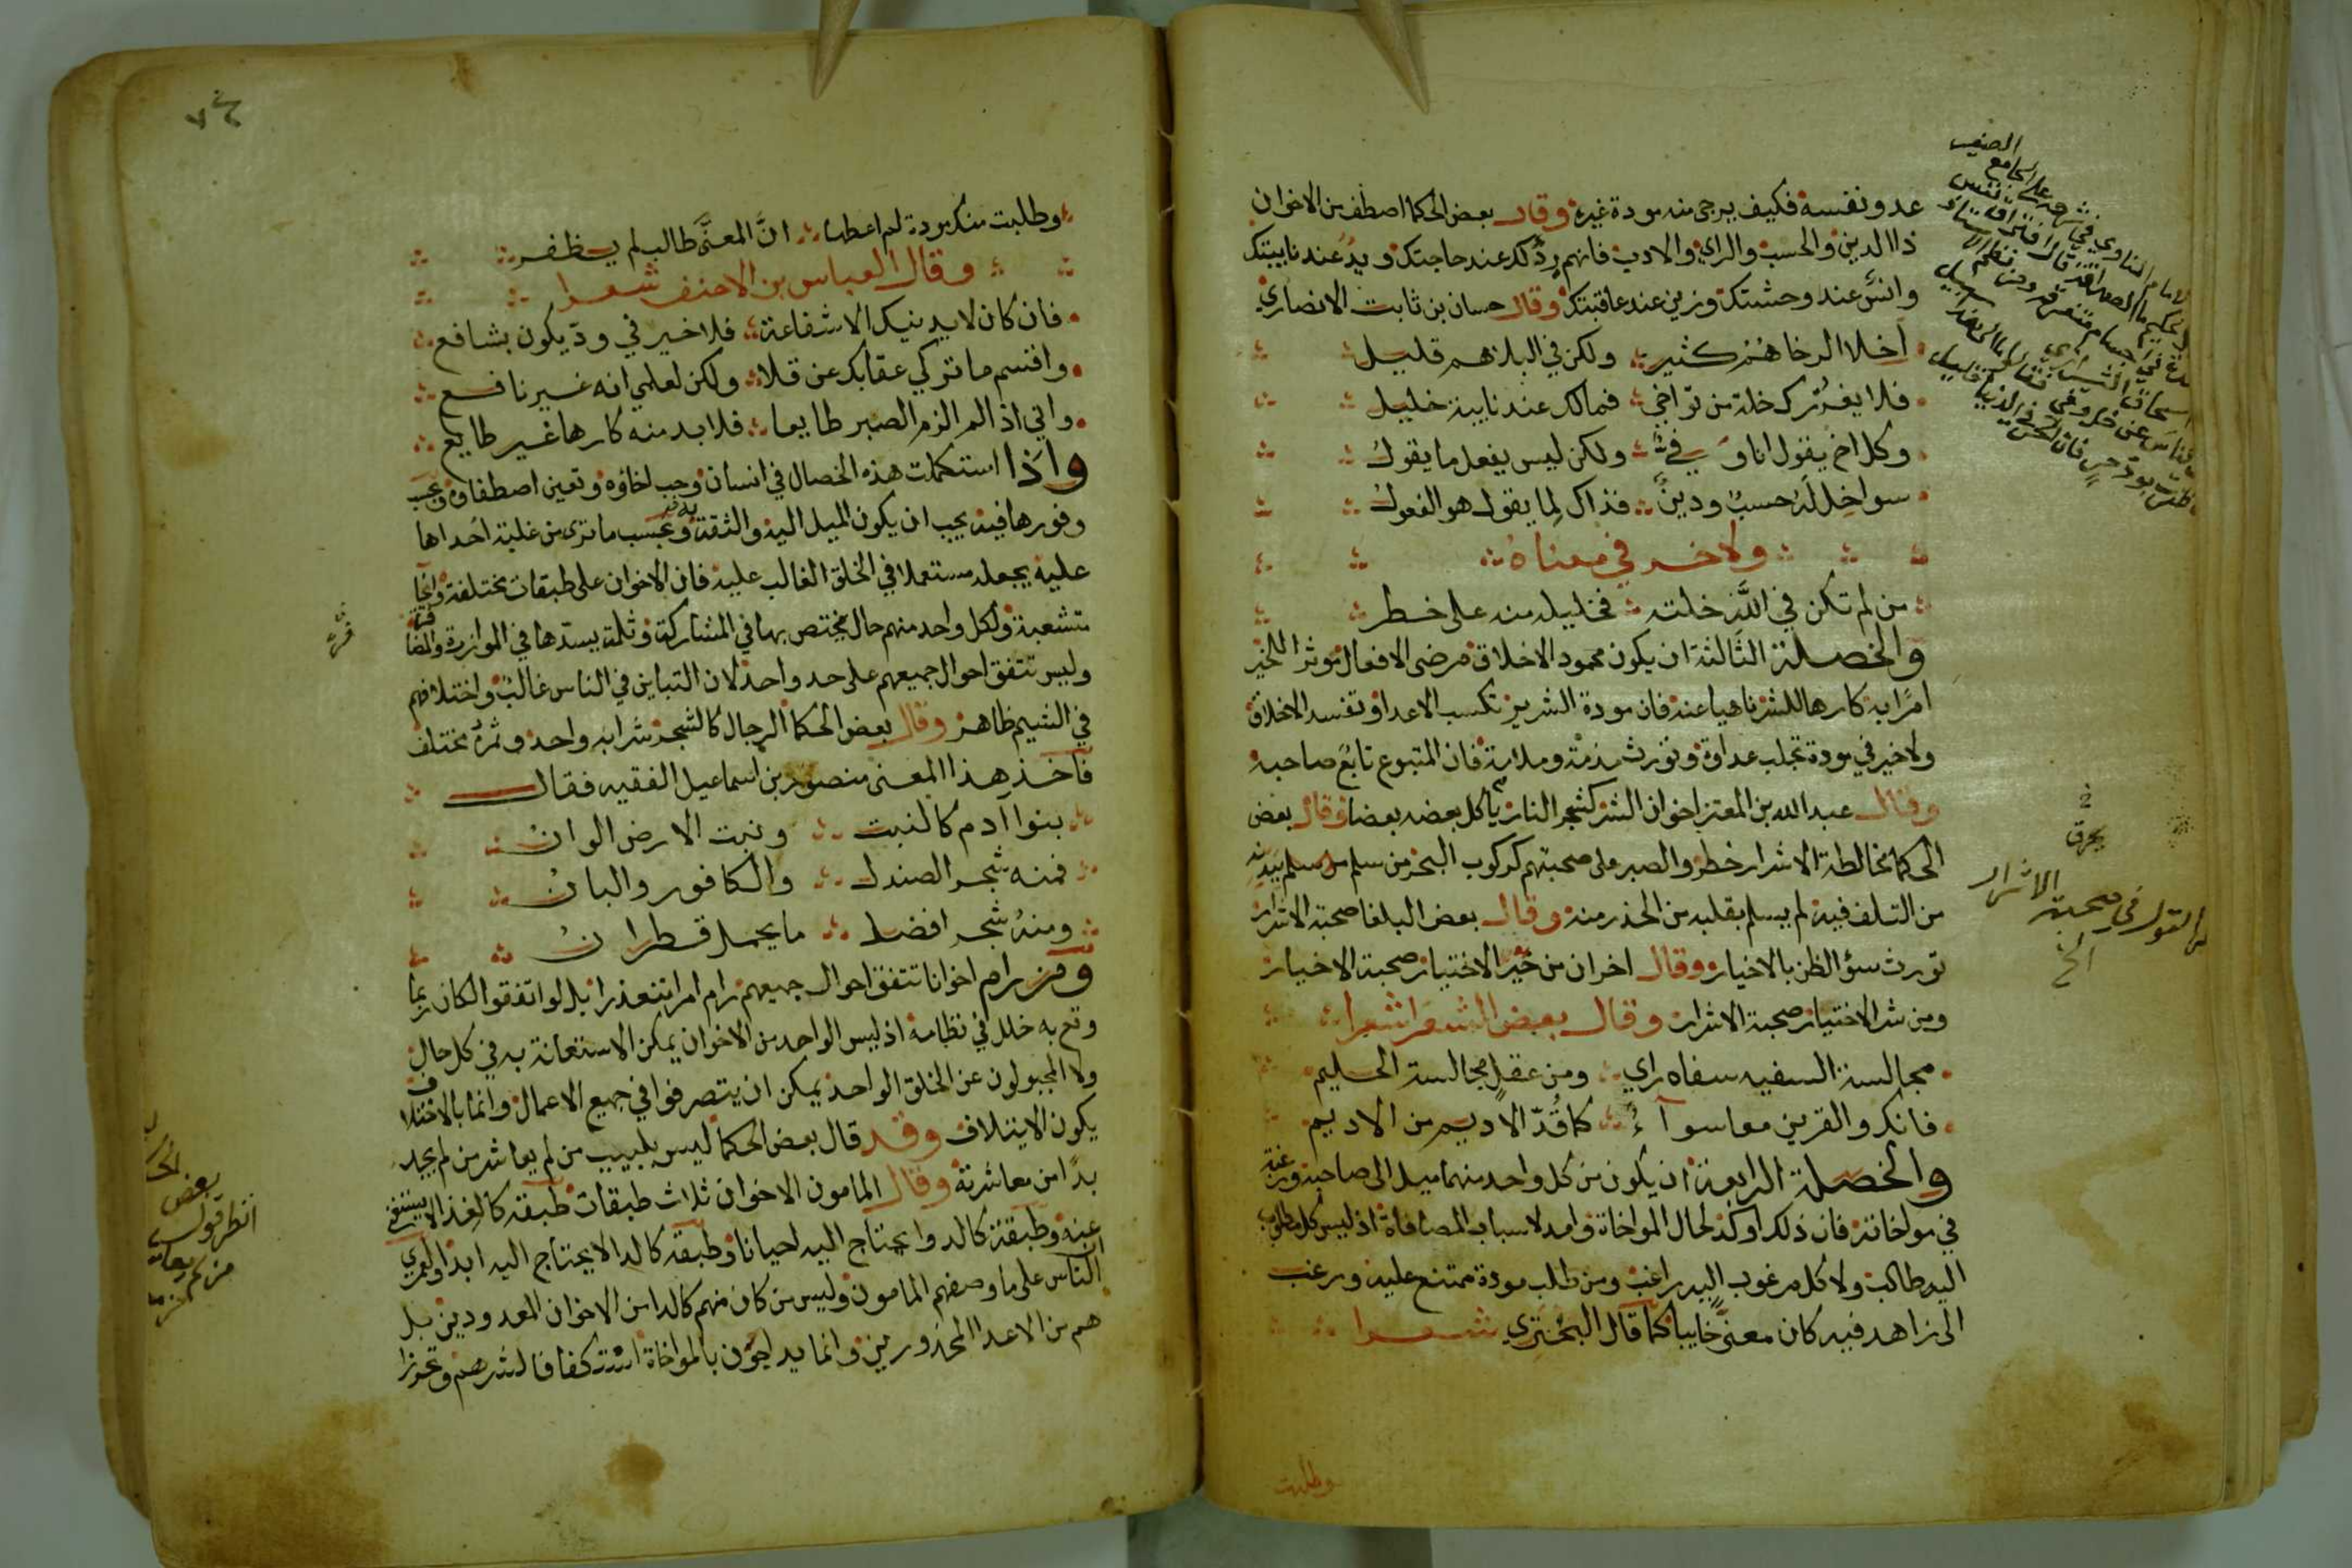 عدو نفسه فكيف يرجى منه مودة غيره وقال بعض الحكما اصطف من الاخوان
ذا الدين والحسب والراي والادب فانهم ردُّ لك عند حاجتك ويدٌ عند نايبتك
وانسٌ عند وحشتك وزين عند عاقبتك وقال حسان بن ثابت الانصاري
أخلا الرخا هُمُ كثير ولكن في البلا هم قليل
فلا يغررك خلة من تواخي فمالك عند نايبة خليل
وكل اخ يقول انا وفي ولكن ليس يفعل ما يقول
سوا خل له حسب ودين فذاك لما يقول هو الفعول
ولاخر في معناه
من لم تكن في الله خلته فخليله منه على خطر
والخصلة الثالثة ان يكون محمود الاخلاق مرضى الافعال موثرا للخير
امرًا به كارها للشر ناهيا عنه فان مودة الشرير تكسب الاعدا وتفسد الاخلاق
ولا خير في مودة تجلب عداوة وتورث مذمة وملامة فان المتبوع تابع صاحبه
وقال عبد الله بن المعتز اخوان الشر كشجر النارنج ياكل بعضه بعضا وقال بعض
الحكما مخالطة الاشرار خطر والصبر على صحبتهم كركوب البحر من سلم منه سلم ببدنه
من التلف فيه لم يسلم بقلبه من الحذر منه وقال بعض البلغا صحبة الاشرار
تورث سؤ الظن بالاخيار وقال اخر ان من خير الاختيار صحبة الاخيار
ومن شر الاختيار صحبة الاشرار وقال بعض الشعرا شعرا
مجالسة السفيه سفاه راي ومن عقل مجالسة الحليم
فانك والقرين معا سوآء كما قُدّ الاديم من الاديم
والخصلة الرابعة ان يكون من كل واحد منهما ميل الى صاحبه ورغبة
في مواخاته فان ذلك اوكد لحال المواخاة وامد لاسباب المصافاة اذ ليس كل مطلوب
اليه طالب ولا كل مرغوب اليه راغب ومن طلب مودة ممتنع عليه ورغب
الى زاهد فيه كان معنّى خايبا كما قال البحتري شعرا
وطلبت
في
يحرق
القول في صحبة الاشرار
الخ
وطلبت منك مودة لم اعطها انَّ المعنَّى طالب لم يظفر
وقال العباس بن الاحنف شعرا
فان كان لا يدنيك الا شفاعة فلا خير في ودّ يكون بشافع
واقسم ما تركي عقابك عن قلا ولكن لعلمي انه غير نافع
واني اذ الم الزم الصبر طايعا فلا بد منه كارها غير طايع
واذا استكملت هذه الخصال في انسان وجب اخاؤه وتعين اصطفاوه وبحسب
وفورها فيه يجب ان يكون الميل اليه والثقة به وبحسب ما ترى من غلبة احداها
عليه يجعله مستعملا في الخلق الغالب عليه فان الاخوان على طبقات مختلفة وانحا
متشعبة ولكل واحد منهم حال يختص بها في المشاركة وثلمة يسدها في الموازرة والمضافرة
وليس تتفق احوال جميعهم على حد واحد لان التباين في الناس غالبٌ واختلافهم
في الشيم ظاهر وقال بعض الحكما الرجال كالشجر شرابه واحد وثمره مختلف
فاخذ هذا المعنى منصور بن اسماعيل الفقيه فقال
بنوا آدم كالنبت ونبت الارض الوان
فمنه شجر الصندل والكافور والبان
ومنه شجر افضل ما يحمل قطران
ومن رام اخوانا تتفق احوال جميعهم رام امرا متعذرا بل لو اتفقوا لكان ربما
وقع به خلل في نظامه اذ ليس الواحد من الاخوان يمكن الاستعانة به في كل حال
ولا المجبولون عن الخلق الواحد يمكن ان يتصرفوا في جميع الاعمال وانما بالاختلاف
يكون الايتلاف وقد قال بعض الحكما ليس بلبيب من لم يعاشر من لم يجد
بدًا من معاشرته وقال المامون الاخوان ثلاث طبقات طبقه كالغذا لا يستغنى
عنه وطبقة كالدوا يحتاج اليه احيانا وطبقه كالدا لا يحتاج اليه ابدا ولعمري
ان الناس على ما وصفهم المامون وليس من كان منهم كالدا من الاخوان المعدودين بل
هم من الاعدا المحذورين وانما يداجون بالمواخاة استكفافا لشرهم وتحرزا
انظر قول
بعض
من لم يعاشر